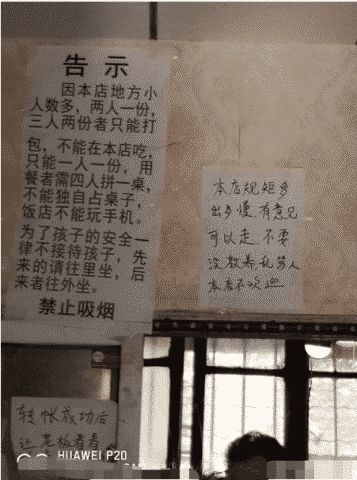 告示
因本店地方小
人数多，两人一份，
三人两份者只能打
包，不能在本店吃，
只能一人一份，用
餐者需四人拼一桌，
不能独自占桌子，
饭店不能玩手机。
为了孩子的安全一
律不接待孩子，先
来的请往里坐，后
来者往外坐。
禁止吸烟
本店规矩多
出多慢有意见
可以走不要
没教养乱骂人
本店不欢迎
转帐成功后
让老板看看
HUAWEI P20